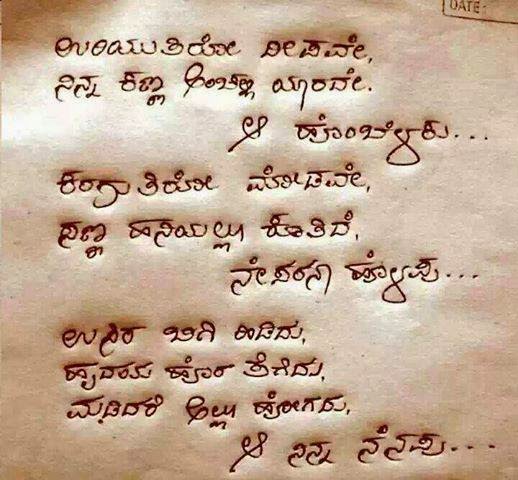 DATE:
ಉರಿಯುತಿರೋ ದೀಪವೇ,
ನಿನ್ನ ಕಣ್ಣ ಅಂಚಲ್ಲಿ ಯಾರವೇ.
ಆ ಹೊಂಬೆಳಕು...
ಕರಗುತಿರೋ ಮೋಡವೇ,
ಸಣ್ಣ ಹನಿಯಲ್ಲೂ ಕೂತಿದೆ,
ನೇಸರನಾ ಹೊಳಪು...
ಉಸಿರ ಬಿಗಿ ಹಿಡಿದು,
ಹೃದಯ ಹೊರ ತೆಗೆದು,
ಮಡಿದರೆ ಅಲ್ಲೂ ಹೋಗದು,
ಆ ನಿನ್ನ ನೆನಪು...